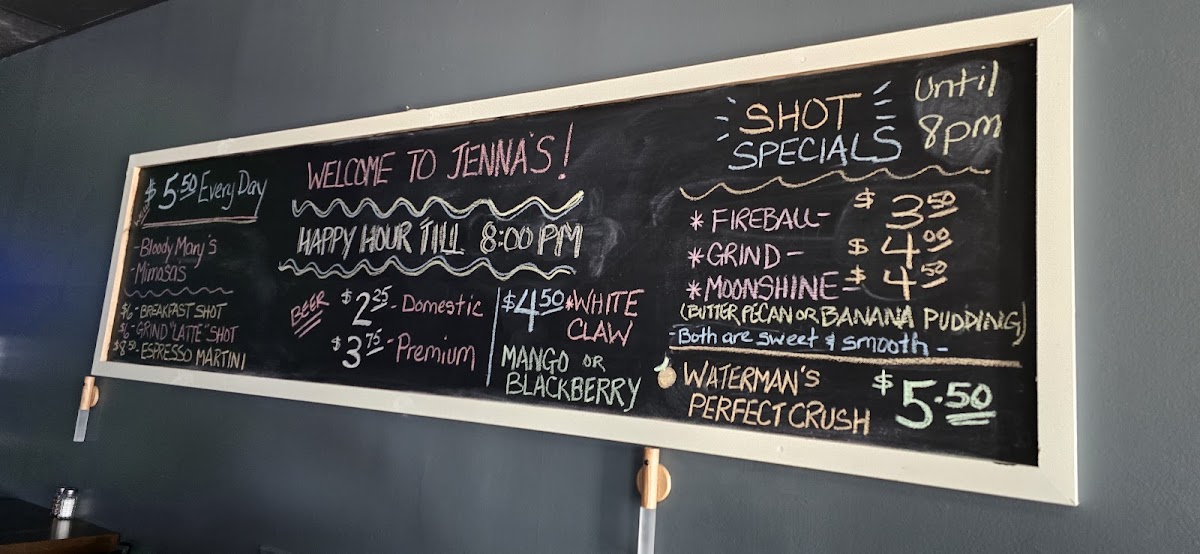 $5.50 Every Day
-Bloody Mary's
-Mimosas
$6-BREAKFAST SHOT
$6-GRIND "LATTE" SHOT
$8.50-ESPRESSO MARTINI
WELCOME TO JENNA'S!
HAPPY HOUR TILL 8:00 PM
BEER
$2.25-Domestic
$3.75-Premium
$4.50 *WHITE
CLAW
MANGO OR
BLACKBERRY
SHOT
SPECIALS
Until
8pm
*FIREBALL- $3.50
*GRIND- $4.00
*MOONSHINE- $4.50
(BUTTER PECAN OR BANANA PUDDING)
-Both are sweet & smooth-
WATERMAN'S
PERFECT CRUSH
$5.50